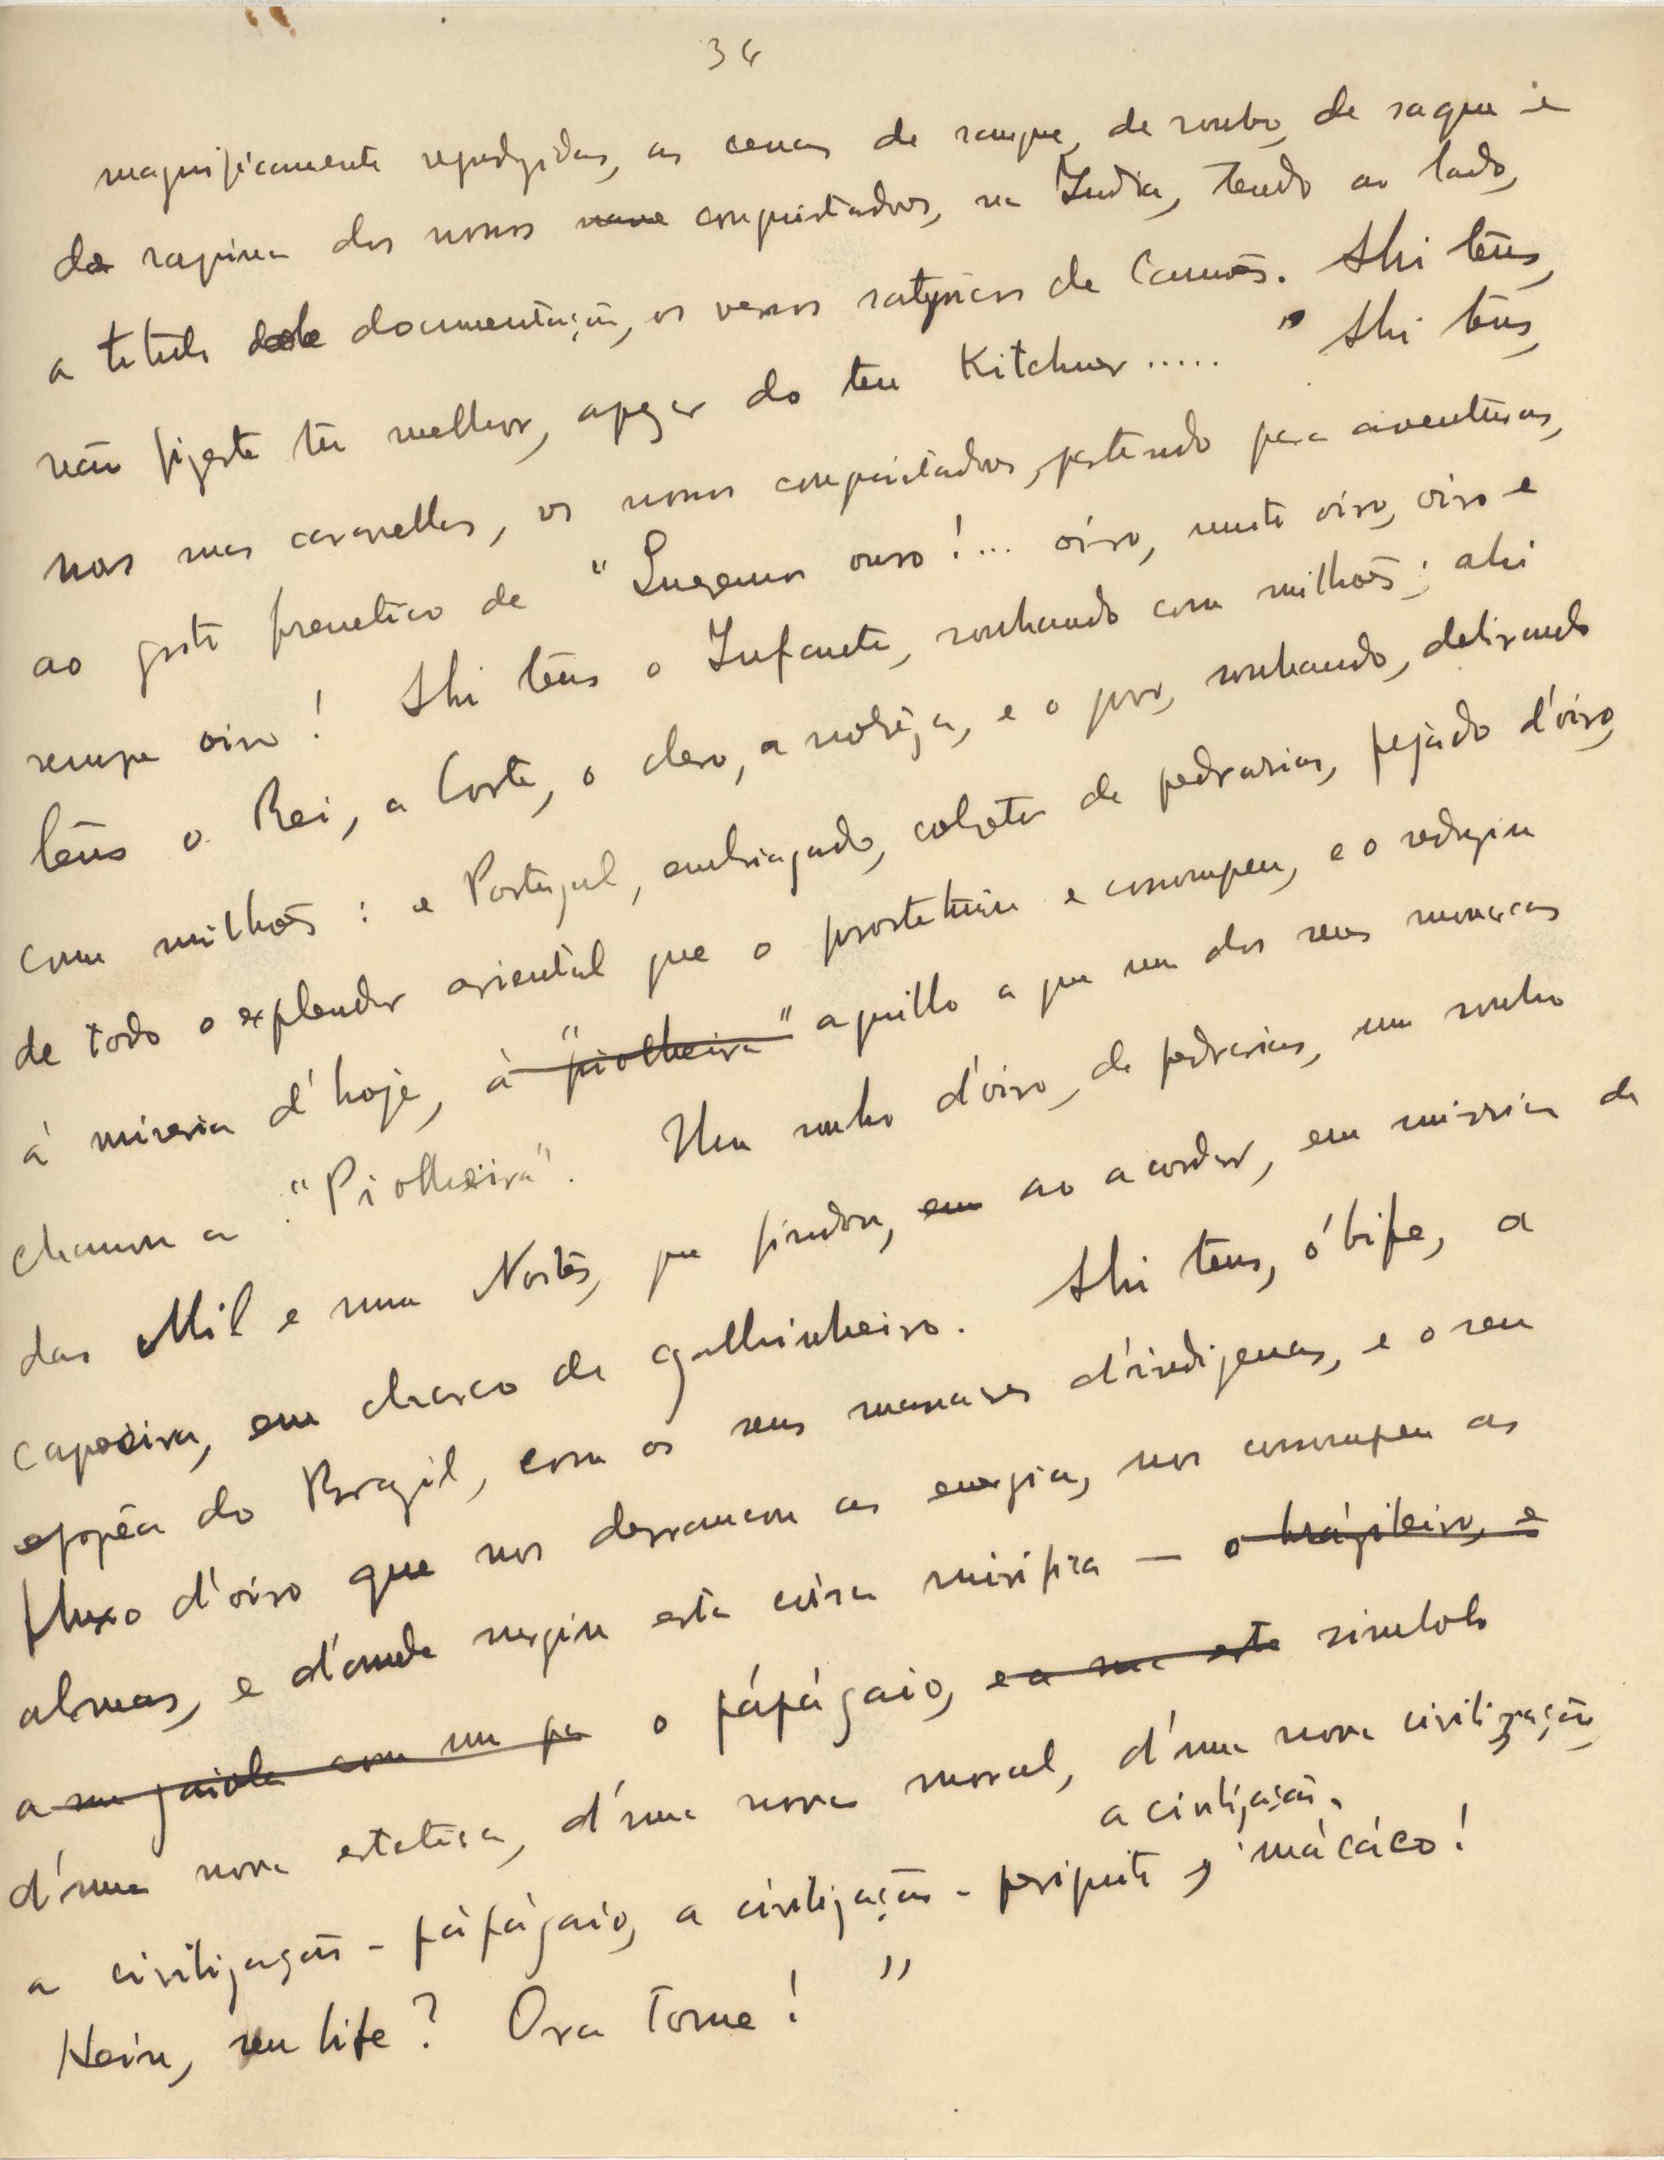 34
magnificamente reproduzidas, as cenas de sangue, de roubo, de saque e
de rapina dos nossos conquistadores, na India, tendo ao lado,
a titulo de documentação, os versos satyricos de Camões. Ahi tens,
não fizeste tu melhor, apezar do teu Kitchner ..... " Ahi tens,
nas suas caravellas, os nossos conquistadores, partindo para aventuras,
ao grito frenetico de " ouro!... oiro, muito oiro, oiro e
sempre oiro! Ahi tens o Infante, sonhando com milhões; ahi
tens o Rei, a Corte, o clero, a nobreza, e o povo, sonhando, delirando
com milhões: e Portugal, embriagado, coberto de pedrarias, pejado d'oiro,
de todo o explendor oriental que o prostetuiu e corrompeu, e o reduziu
á miseria d'hoje, à "piolheira" aquillo a que um dos seus monarcas
chamou a "Piolheira". Um sonho d'oiro, de pedrarias, um sonho
das Mil e uma Noites, que findou, em ao acordar, em miseria de
capoeira, em charco de gallinheiro. Ahi tens, ó bife, a
epopêa do Brazil, com os seus massacres d'indigenas, e o seu
fluxo d'oiro que nos derrancou as energias, nos corrompeu as
almas, e d'onde surgiu esta coisa mirifica — o brázileiro, e
a su gaiola com um pa o pápágaio, e a sua esta simbolo
d'uma nova estetica, d'uma nova moral, d'uma nova civilização,
a civilização,
a civilização - pápágaio, a civilização - periquito, mácáco!
Hein, seu bife? Ora tome! "